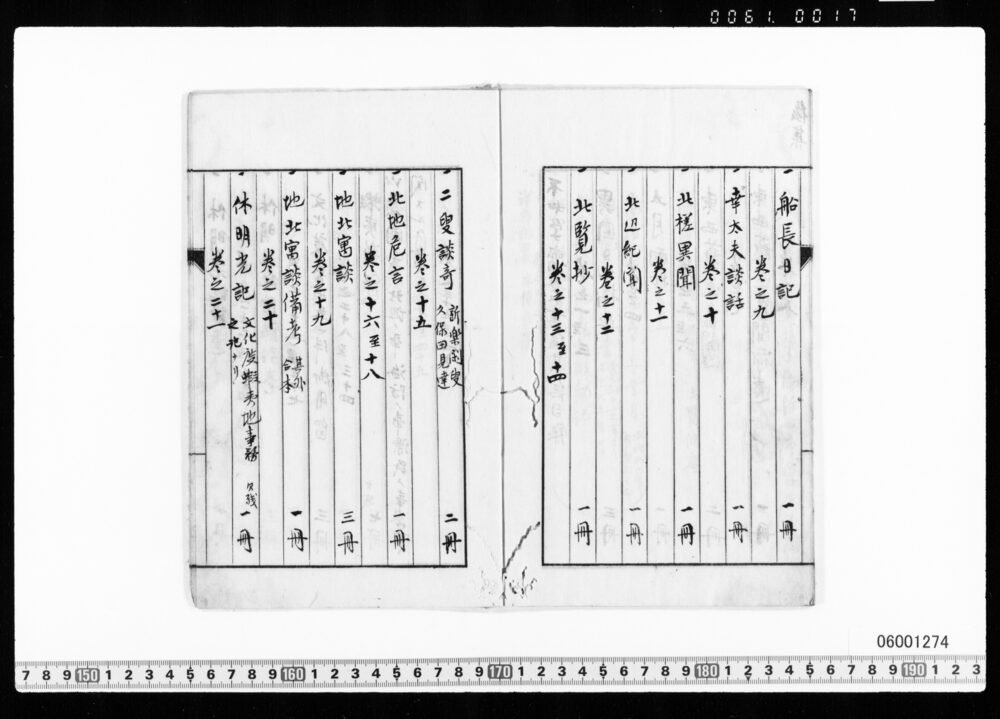 0061.0017
一 船長日記 一冊
巻之九
一 幸太夫談話 一冊
巻之十
一 北槎異聞 一冊
巻之十一
一 北辺紀聞 一冊
巻之十二
一 北覧抄 一冊
巻之十三至十四
一 二叟談奇 二冊
新楽閑叟
久保田見達
巻之十五
一 北地危言 一冊
巻之十六至十八
一 地北寓談 三冊
巻之十九
一 地北寓談備考 其外合本 一冊
巻之二十
一 休明光記 文化度蝦夷地事務 一冊
巻之二十一
06001274
7 8 9 150 1 2 3 4 5 6 7 8 9 160 1 2 3 4 5 6 7 8 9 170 1 2 3 4 5 6 7 8 9 180 1 2 3 4 5 6 7 8 9 190 1 2 3